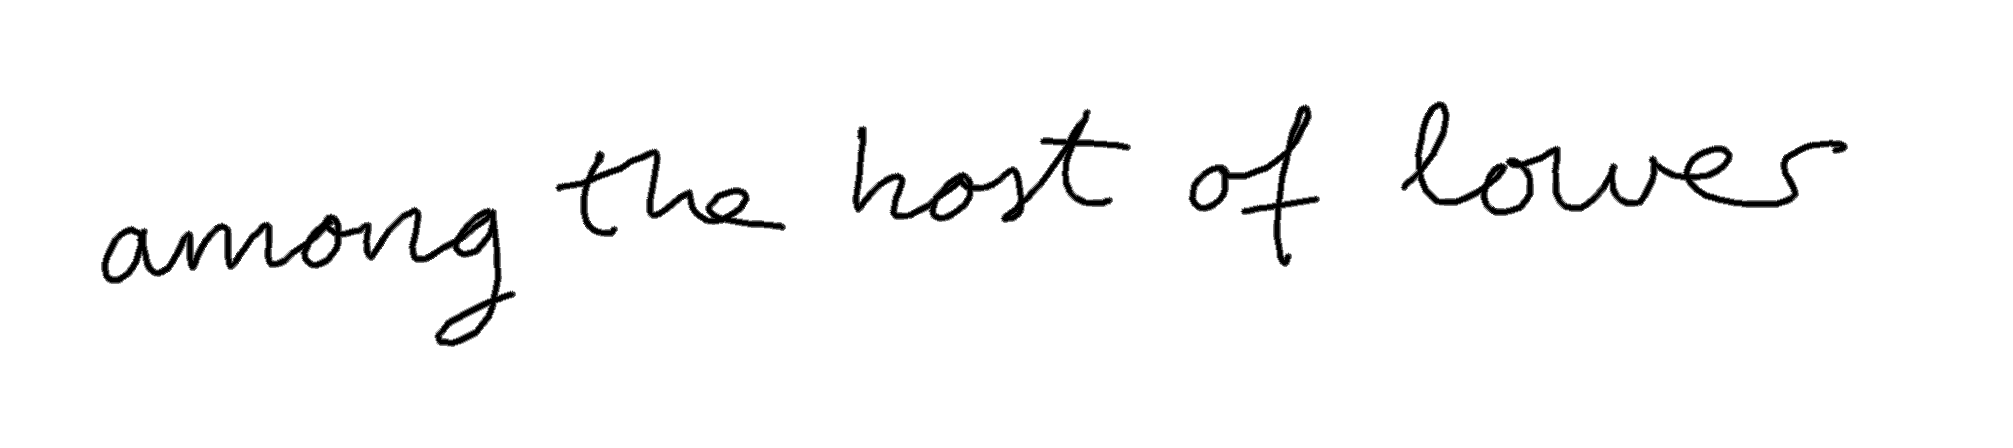 among the host of lower